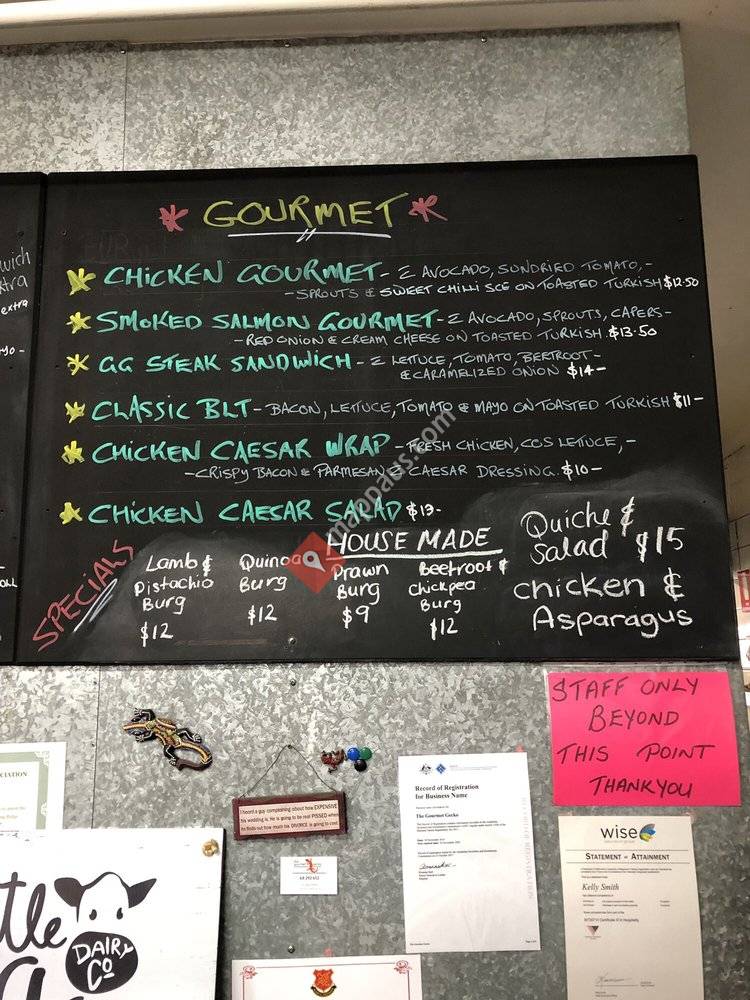 wich
xtra
extra
yo-
OLL
GOURMET
CHICKEN GOURMET - Σ AVOCADO, SUNDRIED TOMATO, -
- SPROUTS & SWEET CHILLI SCE ON TOASTED TURKISH $12.50
SMOKED SALMON GOURMET - Σ AVOCADO, SPROUTS, CAPERS -
- RED ONION & CREAM CHEESE ON TOASTED TURKISH. $13.50
GG STEAK SANDWICH - Σ LETTUCE, TOMATO, BEETROOT -
& CARAMELIZED ONION $14-
CLASSIC BLT - BACON, LETTUCE, TOMATO & MAYO ON TOASTED TURKISH $11-
CHICKEN CAESAR WRAP - FRESH CHICKEN, COS LETTUCE, -
- CRISPY BACON & PARMESAN Σ CAESAR DRESSING. $10-
CHICKEN CAESAR SALAD $13-
SPECIALS
HOUSE MADE
Lamb &
Pistachio
Burg
$12
Quinoa
Burg
$12
Prawn
Burg
$9
Beetroot &
chickpea
Burg
$12
Quiche &
Salad $15
chicken &
Asparagus
mappats.com
STAFF ONLY
BEYOND
THIS POINT
THANKYOU
CIATION
I heard a guy complaining about how EXPENSIVE
his wedding is. He is going to be real PISSED when
he finds out how much his DIVORCE is going to cost
Record of Registration
for Business Name
The Gourmet Gecko
wise
STATEMENT OF ATTAINMENT
Kelly Smith
tle
DAIRY
CO